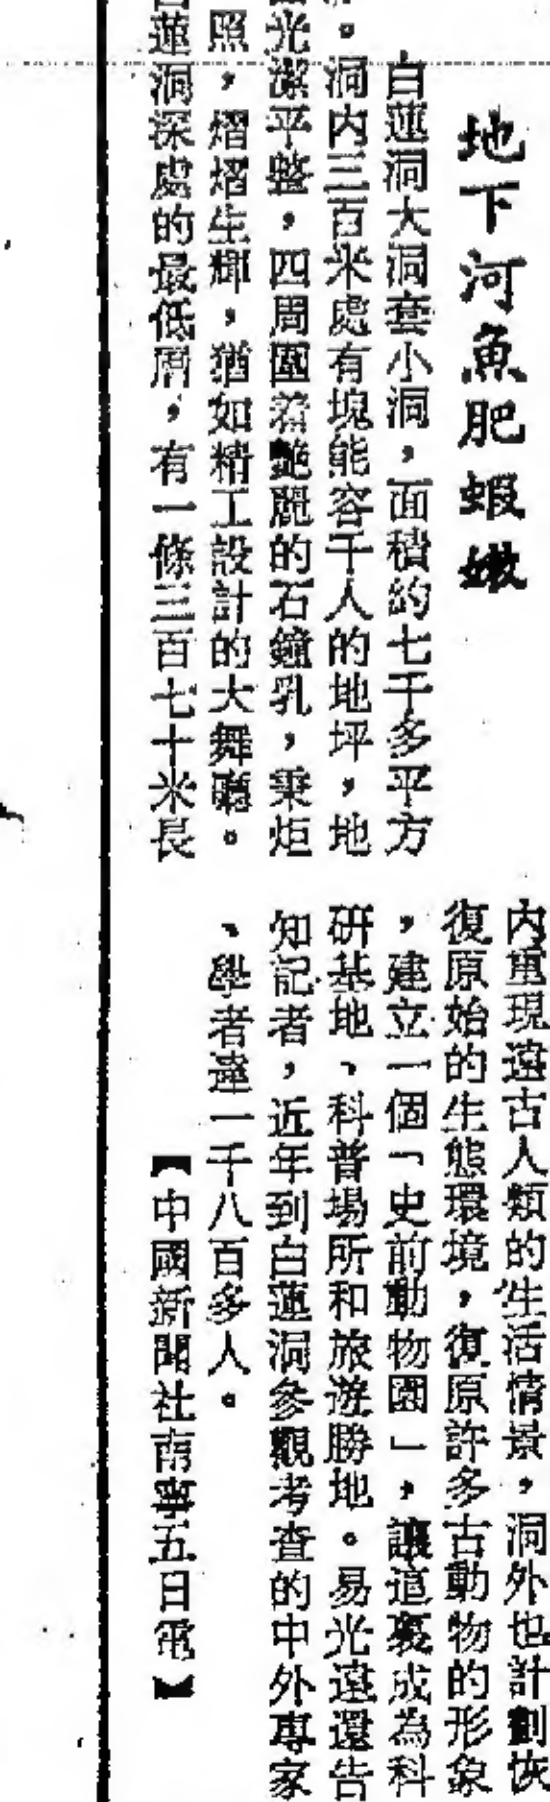 地下河魚肥蝦嫩
白蓮洞大洞套小洞，面積約七千多平方
。洞內三百米處有塊能容千人的地坪，地
光潔平整，四周圍着艷麗的石鐘乳，秉炬
照，熠熠生輝，猶如精工設計的大舞廳。
蓮洞深處的最低層，有一條三百七十米長
內重現遠古人類的生活情景，洞外也計劃恢
復原始的生態環境，復原許多古動物的形象
，建立一個「史前動物園」，讓這裏成為科
研基地、科普場所和旅遊勝地。易光遠還告
知記者，近年到白蓮洞參觀考查的中外專家
、學者達一千八百多人。
【中國新聞社南寧五日電】